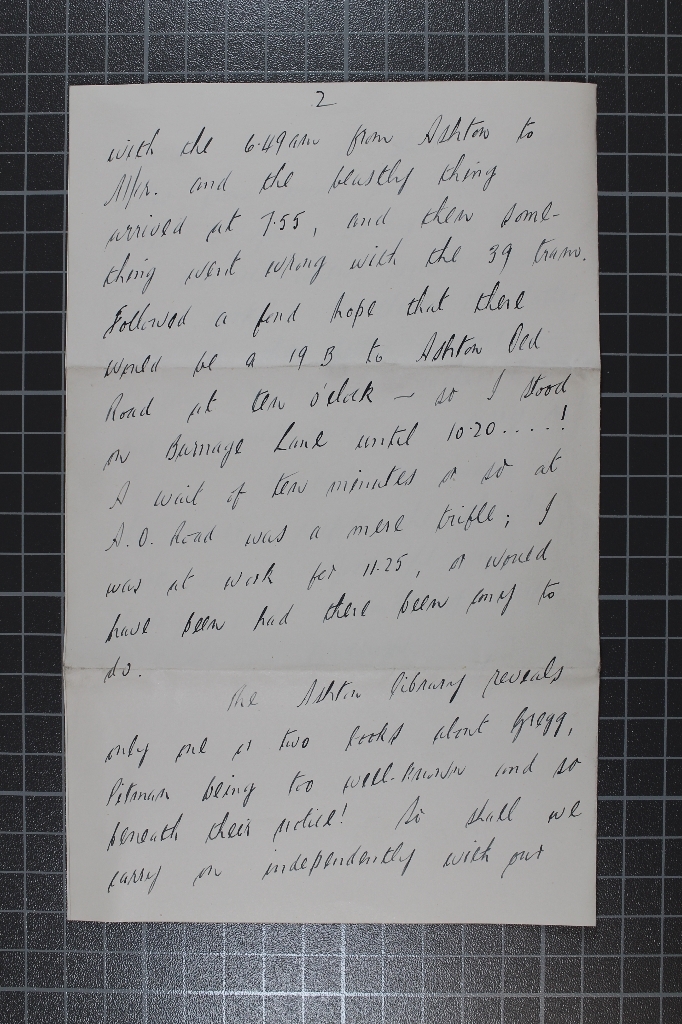 2
with the 6.49am from Ashton to
M/cr. and the beastly thing
arrived at 7.55, and then some-
thing went wrong with the 39 tram.
Followed a fond hope that there
would be a 19 B to Ashton Old
Road at ten o'clock — so I stood
on Burnage Lane until 10.20.....!
A wait of ten minutes or so at
A.O. Road was a mere trifle; I
was at work for 11.25, or would
have been had there been any to
do.
The Ashton library reveals
only one or two books about Gregg,
Pitman being too well-known and so
beneath their notice! So shall we
carry on independently with our